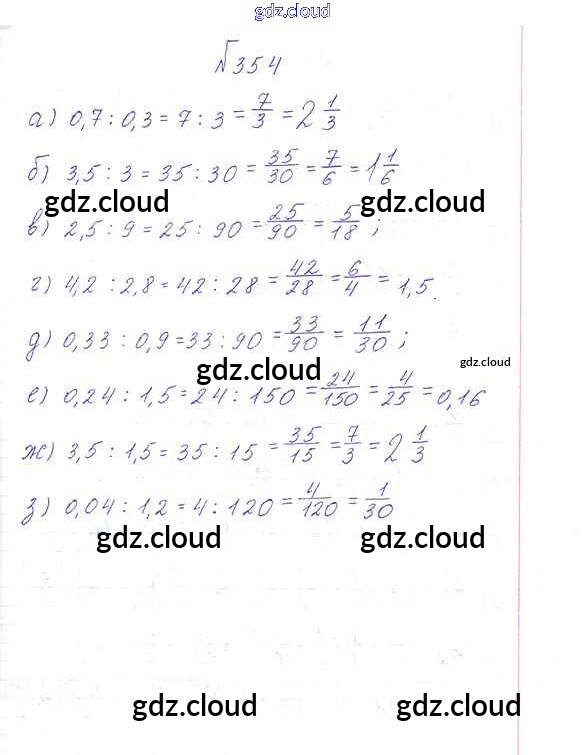 gdz.cloud
№354
а) 0,7 : 0,3 = 7 : 3 = 7/3 = 2 1/3
б) 3,5 : 3 = 35 : 30 = 35/30 = 7/6 = 1 1/6
gdz.cloud gdz.cloud
в) 2,5 : 9 = 25 : 90 = 25/90 = 5/18 ;
г) 4,2 : 2,8 = 42 : 28 = 42/28 = 6/4 = 1,5.
д) 0,33 : 0,9 = 33 : 90 = 33/90 = 11/30 ;
gdz.cloud gdz.cloud
е) 0,24 : 1,5 = 24 : 150 = 24/150 = 4/25 = 0,16
ж) 3,5 : 1,5 = 35 : 15 = 35/15 = 7/3 = 2 1/3
з) 0,04 : 1,2 = 4 : 120 = 4/120 = 1/30
gdz.cloud gdz.cloud
gdz.cloud gdz.cloud